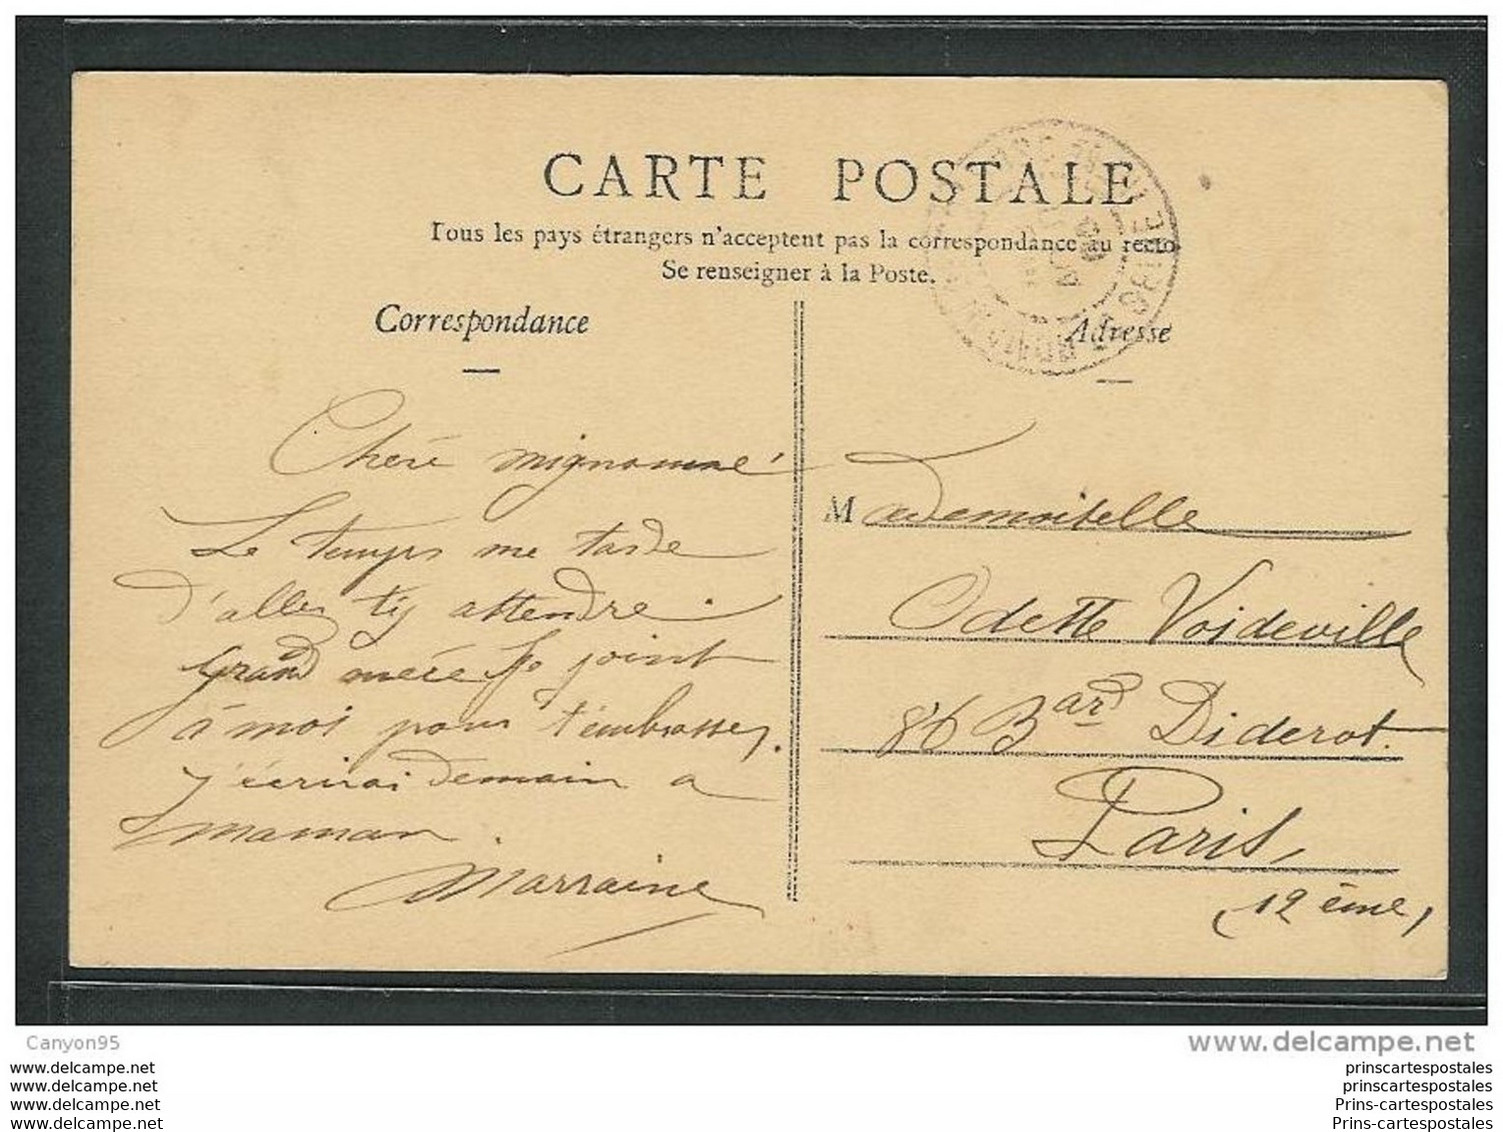 CARTE POSTALE
Tous les pays étrangers n'acceptent pas la correspondance au recto.
Se renseigner à la Poste.
Correspondance
Adresse
Chère mignonne
Le temps me tarde
d'aller t'y attendre.
Grand mère se joint
à moi pour t'embrasser,
j'écrirai demain a
maman.
Marraine
Mademoiselle
Odette Voideville
86 Bard Diderot.
Paris,
(12 ème)
Canyon95
www.delcampe.net
www.delcampe.net
www.delcampe.net
www.delcampe.net
www.delcampe.net
prinscartespostales
prinscartespostales
Prins-cartespostales
Prins-cartespostales